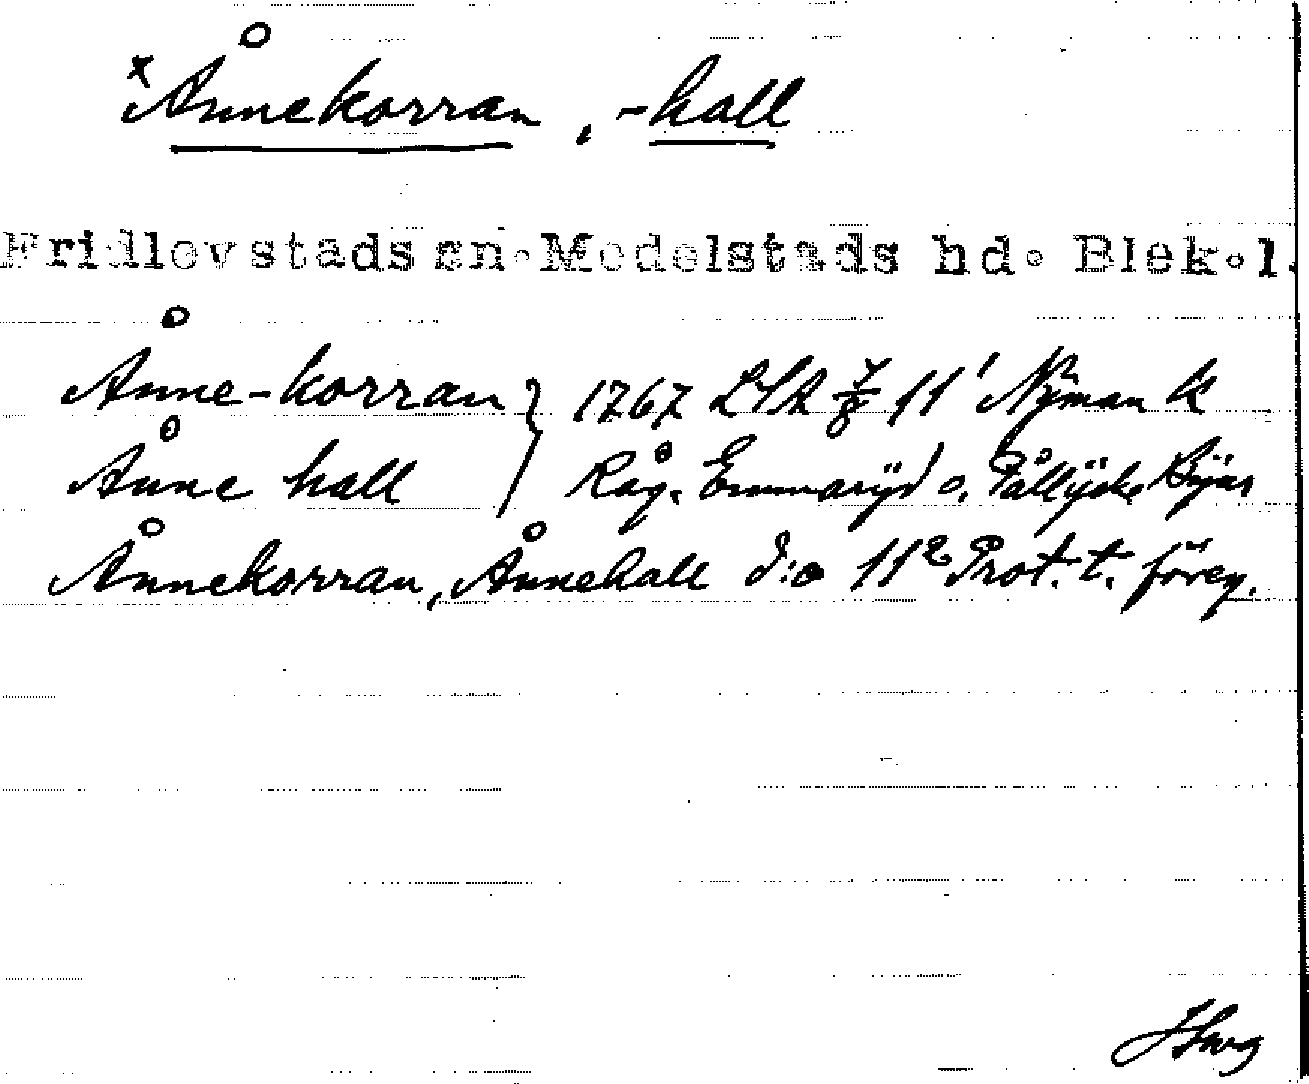 x Ånnekorran, -hall
Fridlevstads sn. Medelstads hd. Blek.l.
Ånne-korran } 1767 LSA 7/8 11¹ Nyman k
Ånne hall Råg. Emmarÿd o. Pållÿcke Bÿar
Ånnekorran, Ånnehall d:o 11² Prot. t. föreg.